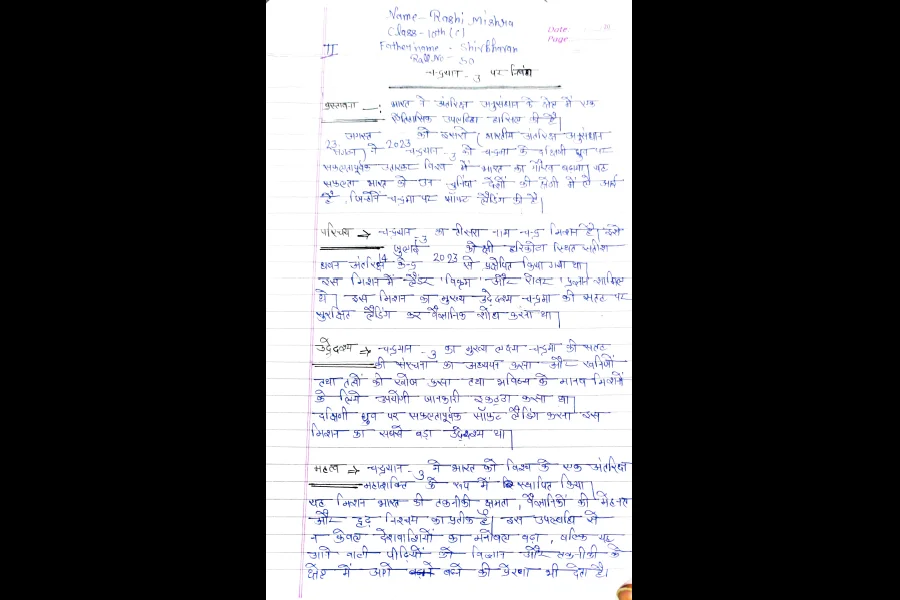 Name - Rashi Mishra
Class - 10th (c)
Date
Page
Father name - Shivbharan
Roll.No - 50
चन्द्रयान - 3 पर निबंध
प्रस्तावना -: भारत ने अंतरिक्ष अनुसंधान के क्षेत्र में एक
ऐतिहासिक उपलब्धि हासिल की है।
23 अगस्त 2023 को इसरो (भारतीय अंतरिक्ष अनुसंधान
संगठन) ने चन्द्रयान - 3 को चन्द्रमा के दक्षिणी ध्रुव पर
सफलतापूर्वक उतारकर विश्व में भारत का गौरव बढ़ाया। यह
सफलता भारत को उन चुनिंदा देशों की श्रेणी में ले आई
है, जिन्होंने चन्द्रमा पर सॉफ्ट लैंडिंग की है।
परिचय ⇒ चन्द्रयान - 3 का तीसरा नाम चन्द्र मिशन है। इसे
14 जुलाई 2023 को श्री हरिकोटा स्थित सतीश
धवन अंतरिक्ष केन्द्र से प्रक्षेपित किया गया था।
इस मिशन में लैंडर 'विक्रम' और रोवर 'प्रज्ञान' शामिल
थे। इस मिशन का मुख्य उद्देश्य चन्द्रमा की सतह पर
सुरक्षित लैंडिंग कर वैज्ञानिक शोध करना था।
उद्देश्य ⇒ चन्द्रयान - 3 का मुख्य लक्ष्य चन्द्रमा की सतह
की संरचना का अध्ययन करना और खनिजों
तथा तत्वों की खोज करना तथा भविष्य के मानव मिशनों
के लिये उपयोगी जानकारी इकट्ठा करना था।
दक्षिणी ध्रुव पर सफलतापूर्वक सॉफ्ट लैंडिंग करना इस
मिशन का सबसे बड़ा उद्देश्य था।
महत्व ⇒ चन्द्रयान - 3 ने भारत को विश्व के एक अंतरिक्ष
महाशक्ति के रूप में स्थापित किया।
यह मिशन भारत की तकनीकी क्षमता, वैज्ञानिकों की मेहनत
और दृढ़ निश्चय का प्रतीक है। इस उपलब्धि से
न केवल देशवासियों का मनोबल बढ़ा, बल्कि यह
आने वाली पीढ़ियों को विज्ञान और तकनीकी के
क्षेत्र में आगे बढ़ने की प्रेरणा भी देता है।